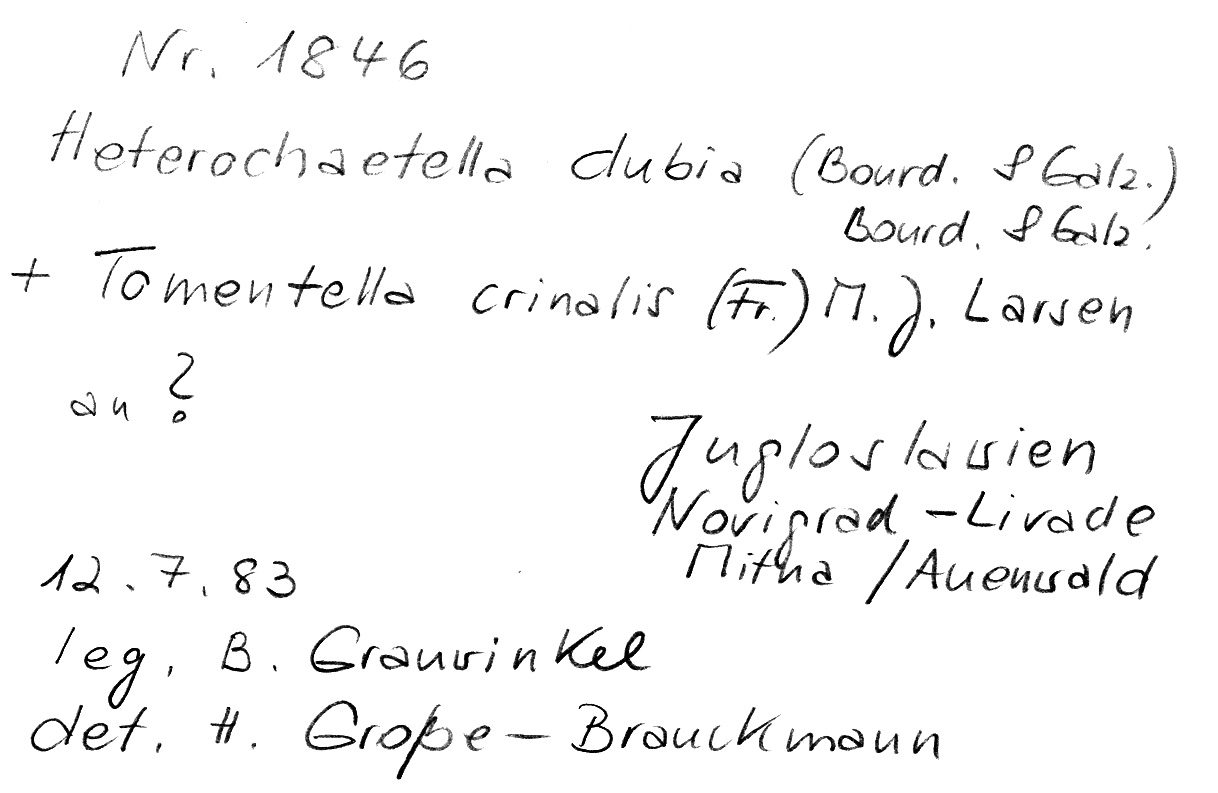 Nr. 1846
Heterochaetella dubia (Bourd. & Galz.)
Bourd. & Galz.
+ Tomentella crinalis (Fr.) M. J. Larsen
an ?
Jugloslawien
Novigrad - Livade
/ Auenwald
12. 7. 83
leg. B. Grauwinkel
det. H. Große - Brauckmann